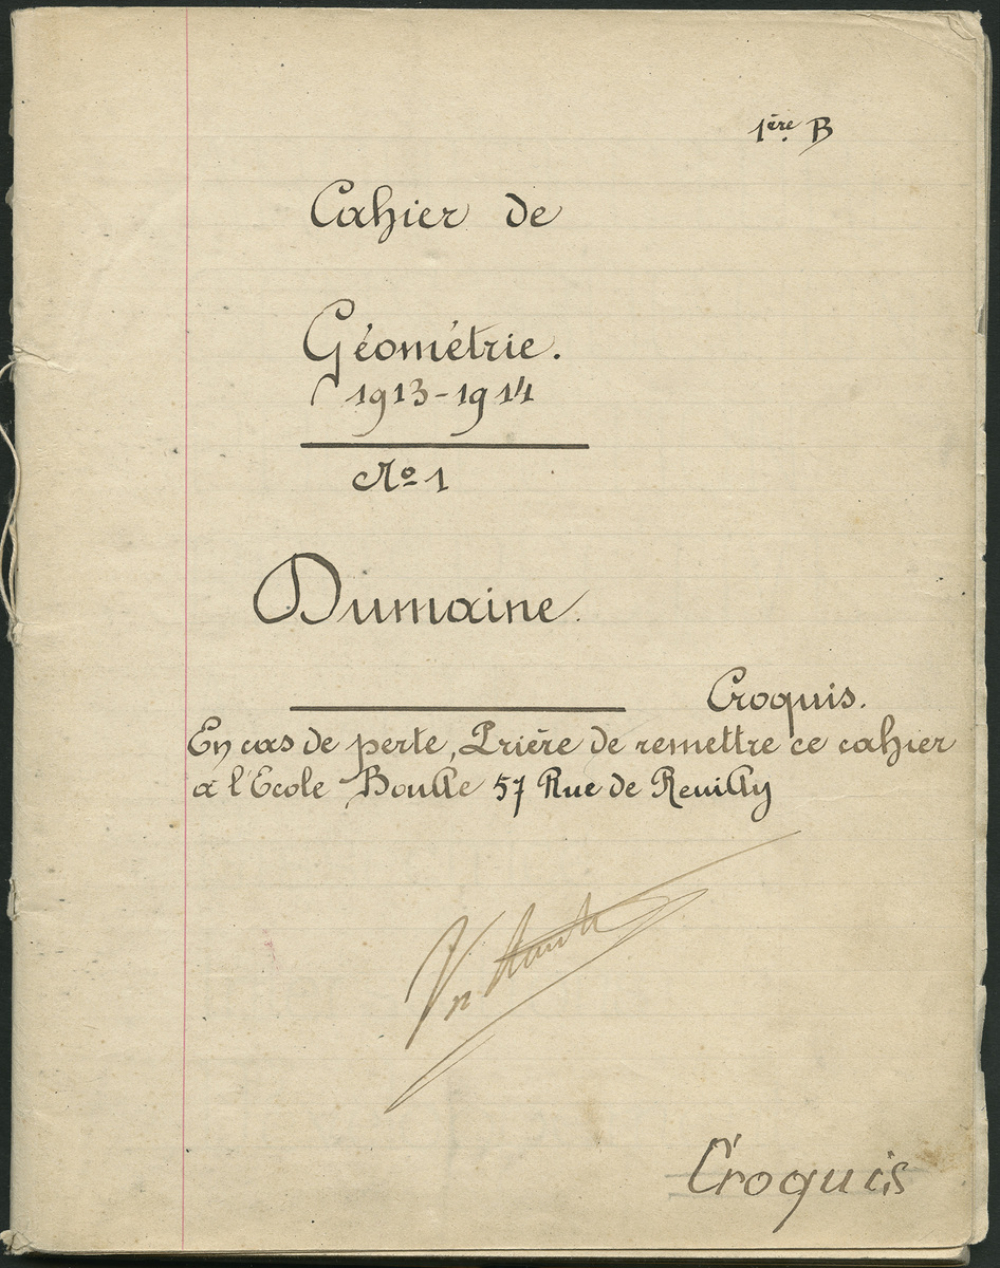 1ère B
Cahier de
Géométrie.
1913-1914
No 1
Dumaine.
Croquis.
En cas de perte, Prière de remettre ce cahier
à l'Ecole Boulle 57 Rue de Reuilly
Croquis